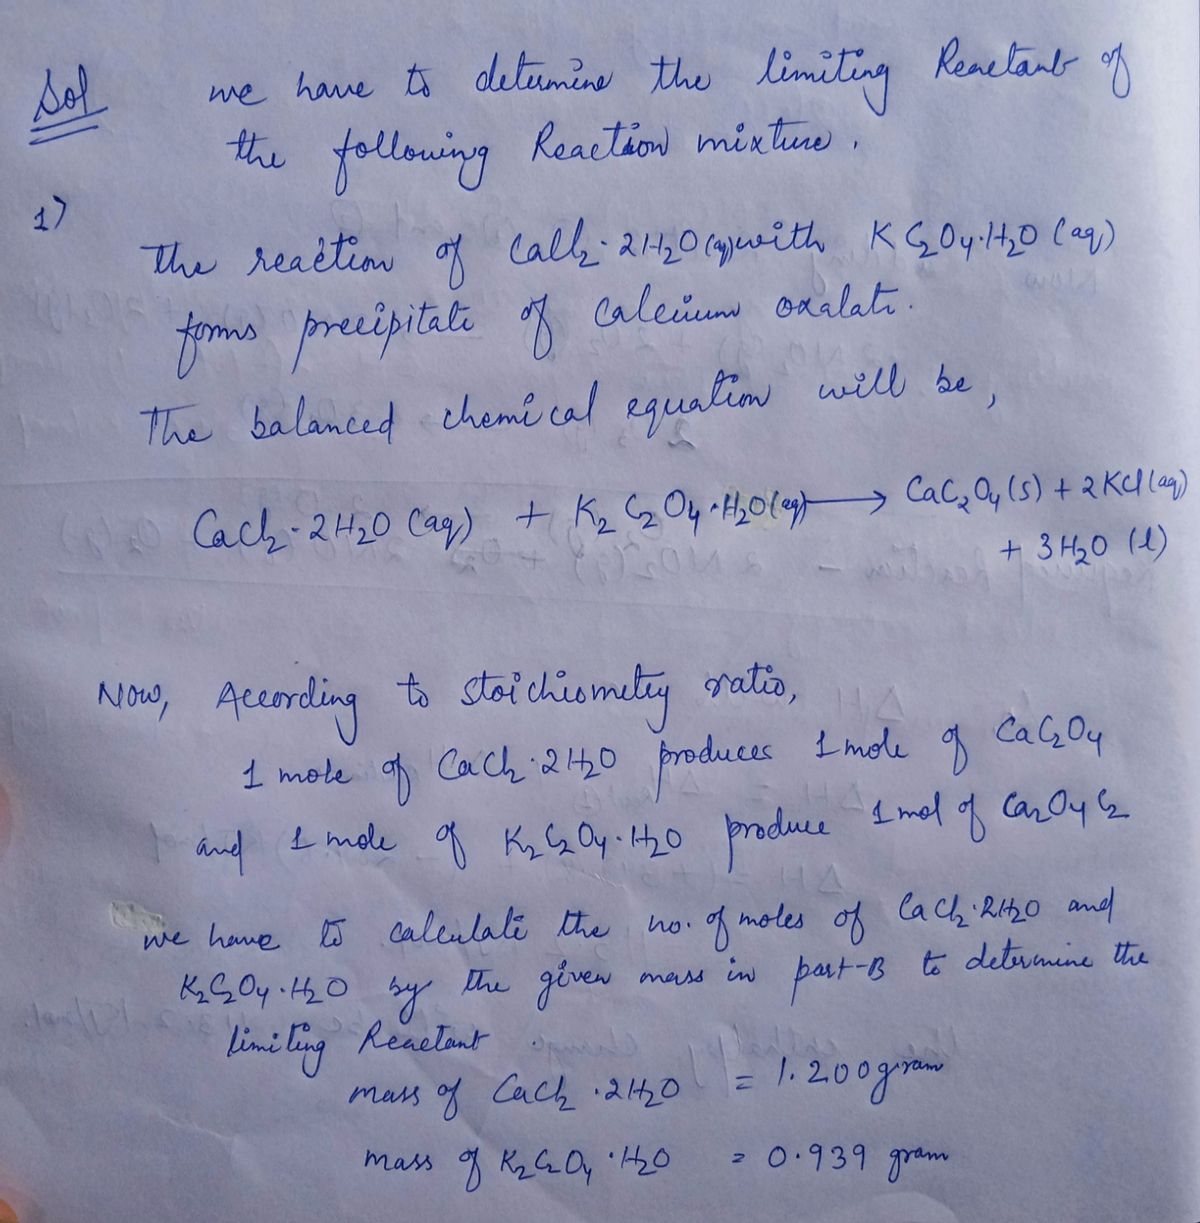 Sol we have to determine the limiting Reactant of
the following Reaction mixture.
1)
The reaction of CaCl₂·2H₂O(aq) with K C₂O₄·H₂O (aq)
forms precipitate of calcium oxalate.
The balanced chemical equation will be,
CaCl₂·2H₂O (aq) + K₂C₂O₄·H₂O(aq) → CaC₂O₄(s) + 2KCl(aq)
+ 3H₂O (l)
Now, According to stoichiometry ratio,
1 mole of CaCl₂·2H₂O produces 1 mole of CaC₂O₄
and 1 mole of K₂C₂O₄·H₂O produce 1 mol of Ca₂O₄C₂
we have to calculate the no. of moles of CaCl₂·2H₂O and
K₂C₂O₄·H₂O by the given mass in part-B to determine the
limiting Reactant.
mass of CaCl₂·2H₂O = 1.200 gram
mass of K₂C₂O₄·H₂O = 0.939 gram